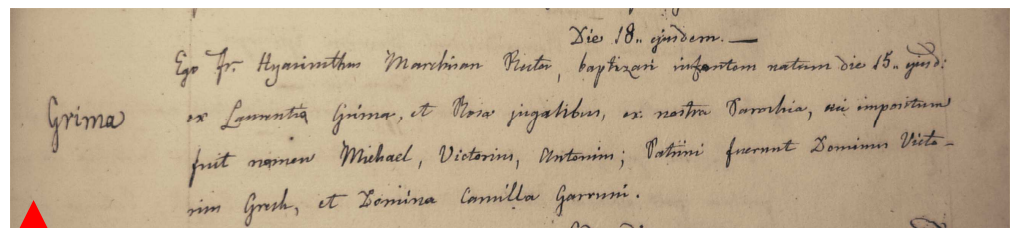 Die 18.. ejusdem. —
Ego Fr. Hyacinthus Marchisan Rector, baptizavi infantem natum die 15.. ejusd:
Grima
ex Laurentio Grima, et Rosa jugalibus, ex nostra Parochia, cui impositum
fuit nomen Michael, Victorius, Antonius; Patrini fuerunt Dominus Victo-
rius Grech, et Domina Camilla Garruni.